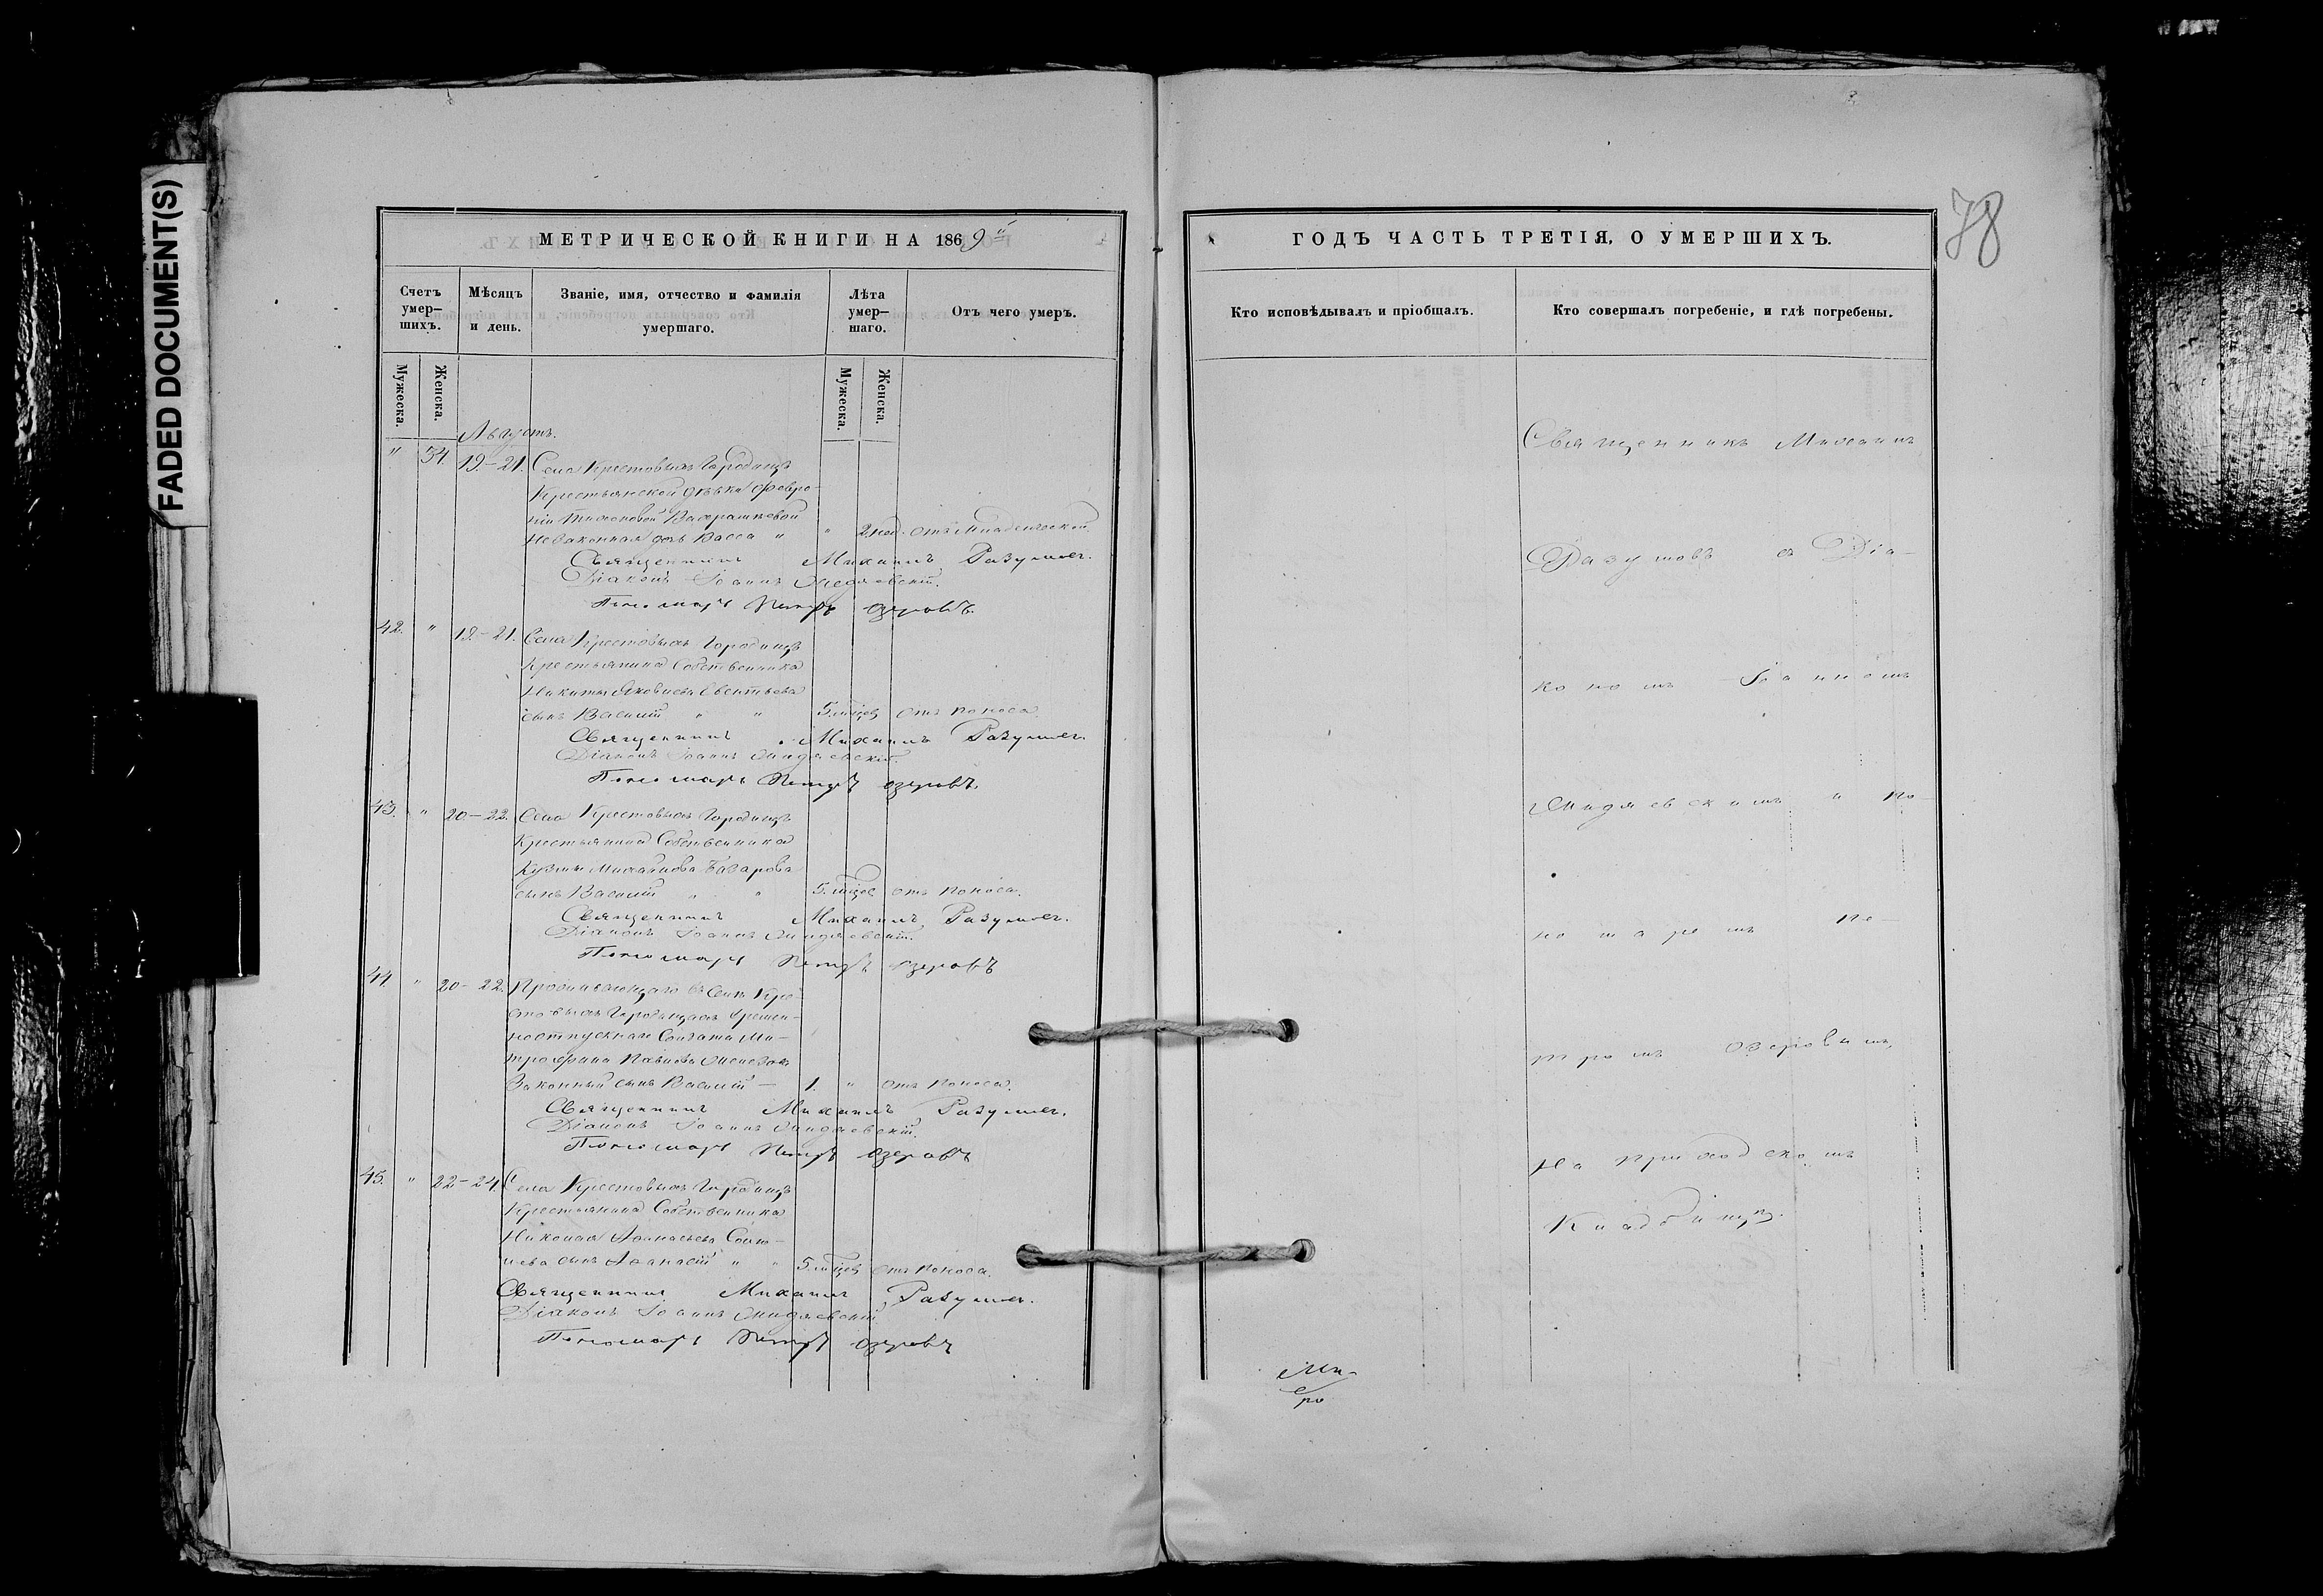 FADED DOCUMENT(S)
МЕТРИЧЕСКОЙ КНИГИ НА 1869й
Счетъ умер-шихъ.
Мѣсяцъ и день.
Званіе, имя, отчество и фамилія умершаго.
Лѣта умер-шаго.
Отъ чего умеръ.
Мужеска.
Женска.
Мужеска.
Женска.
Августъ.
" 34. 19.-21. Села Крестовыхъ Городищъ
Крестьянской дѣвки Февро-
ніи Тихоновой
незаконная дочь Васса " " 2 нед. отъ младенческой
Священникъ Михаилъ Разумовъ.
Діаконъ Іоаннъ
Пономарь Петръ Озеровъ.
42. " 19.-21. Села Крестовыхъ Городищъ
Крестьянина Собственника
Никиты Яковлева
сынъ Василій " " 5. мцев отъ поноса.
Священникъ Михаилъ Разумовъ.
Діаконъ Іоаннъ
Пономарь Петръ Озеровъ.
43. " 20.-22. Села Крестовыхъ Городищъ
Крестьянина Собственника
Кузьмы Михайлова Базарова
сынъ Василій " " 5. мцев отъ поноса.
Священникъ Михаилъ Разумовъ.
Діаконъ Іоаннъ
Пономарь Петръ Озеровъ
44 " 20-22. Проживающаго въ Селѣ Кре-
стовыхъ Городищахъ Времен-
ноотпускнаго Солдата Ми-
трофана Павлова
Законный сынъ Василій — 1. " отъ поноса.
Священникъ Михаилъ Разумовъ.
Діаконъ Іоаннъ
Пономарь Петръ Озеровъ
45. " 22-24. Села Крестовыхъ Городищъ
Крестьянина Собственника
Николая Афанасьева
сынъ Афанасій " " 5. мцев отъ поноса.
Священникъ Михаилъ Разумовъ.
Діаконъ Іоаннъ
Пономарь Петръ Озеровъ
78
ГОДЪ ЧАСТЬ ТРЕТІЯ, О УМЕРШИХЪ.
Кто исповѣдывалъ и пріобщалъ.
Кто совершалъ погребеніе, и гдѣ погребены.
Священникъ Михаилъ
Разумовъ съ Діа-
кономъ Іоанномъ
и по-
номаремъ Пе-
тромъ Озеровымъ,
на приходскомъ
Кладбищѣ.